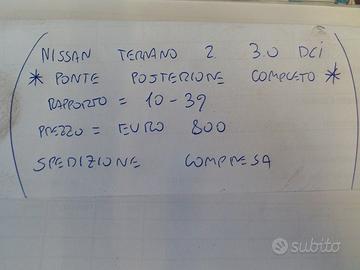 NISSAN TERRANO 2 3.0 DCI
* PONTE POSTERIORE COMPLETO *
RAPPORTO = 10-39
PREZZO = EURO 800
SPEDIZIONE COMPRESA
subito